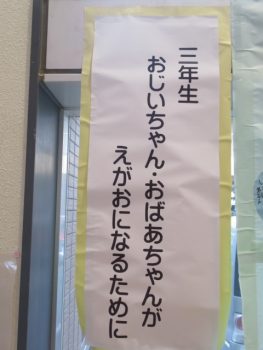 三年生
おじいちゃん・おばあちゃんが
えがおになるために